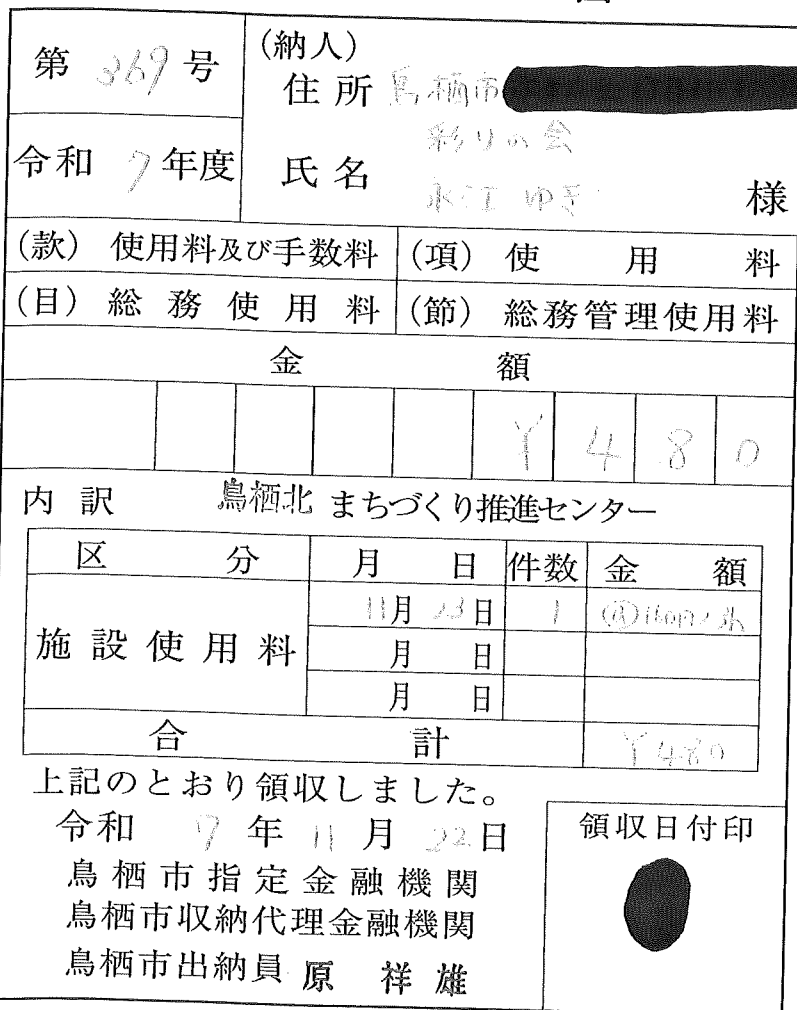 第 369 号
(納人)
住所 鳥栖市
彩りの会
令和 7 年度
氏名 永江 ゆき 様
(款) 使用料及び手数料 (項) 使用料
(目) 総務使用料 (節) 総務管理使用料
金額
¥480
内訳 鳥栖北 まちづくり推進センター
区分 月日 件数 金額
施設使用料 11月23日 1
月 日
月 日
合計 ¥480
上記のとおり領収しました。
令和 7 年 11 月 22 日
領収日付印
鳥栖市指定金融機関
鳥栖市収納代理金融機関
鳥栖市出納員 原 祥雄